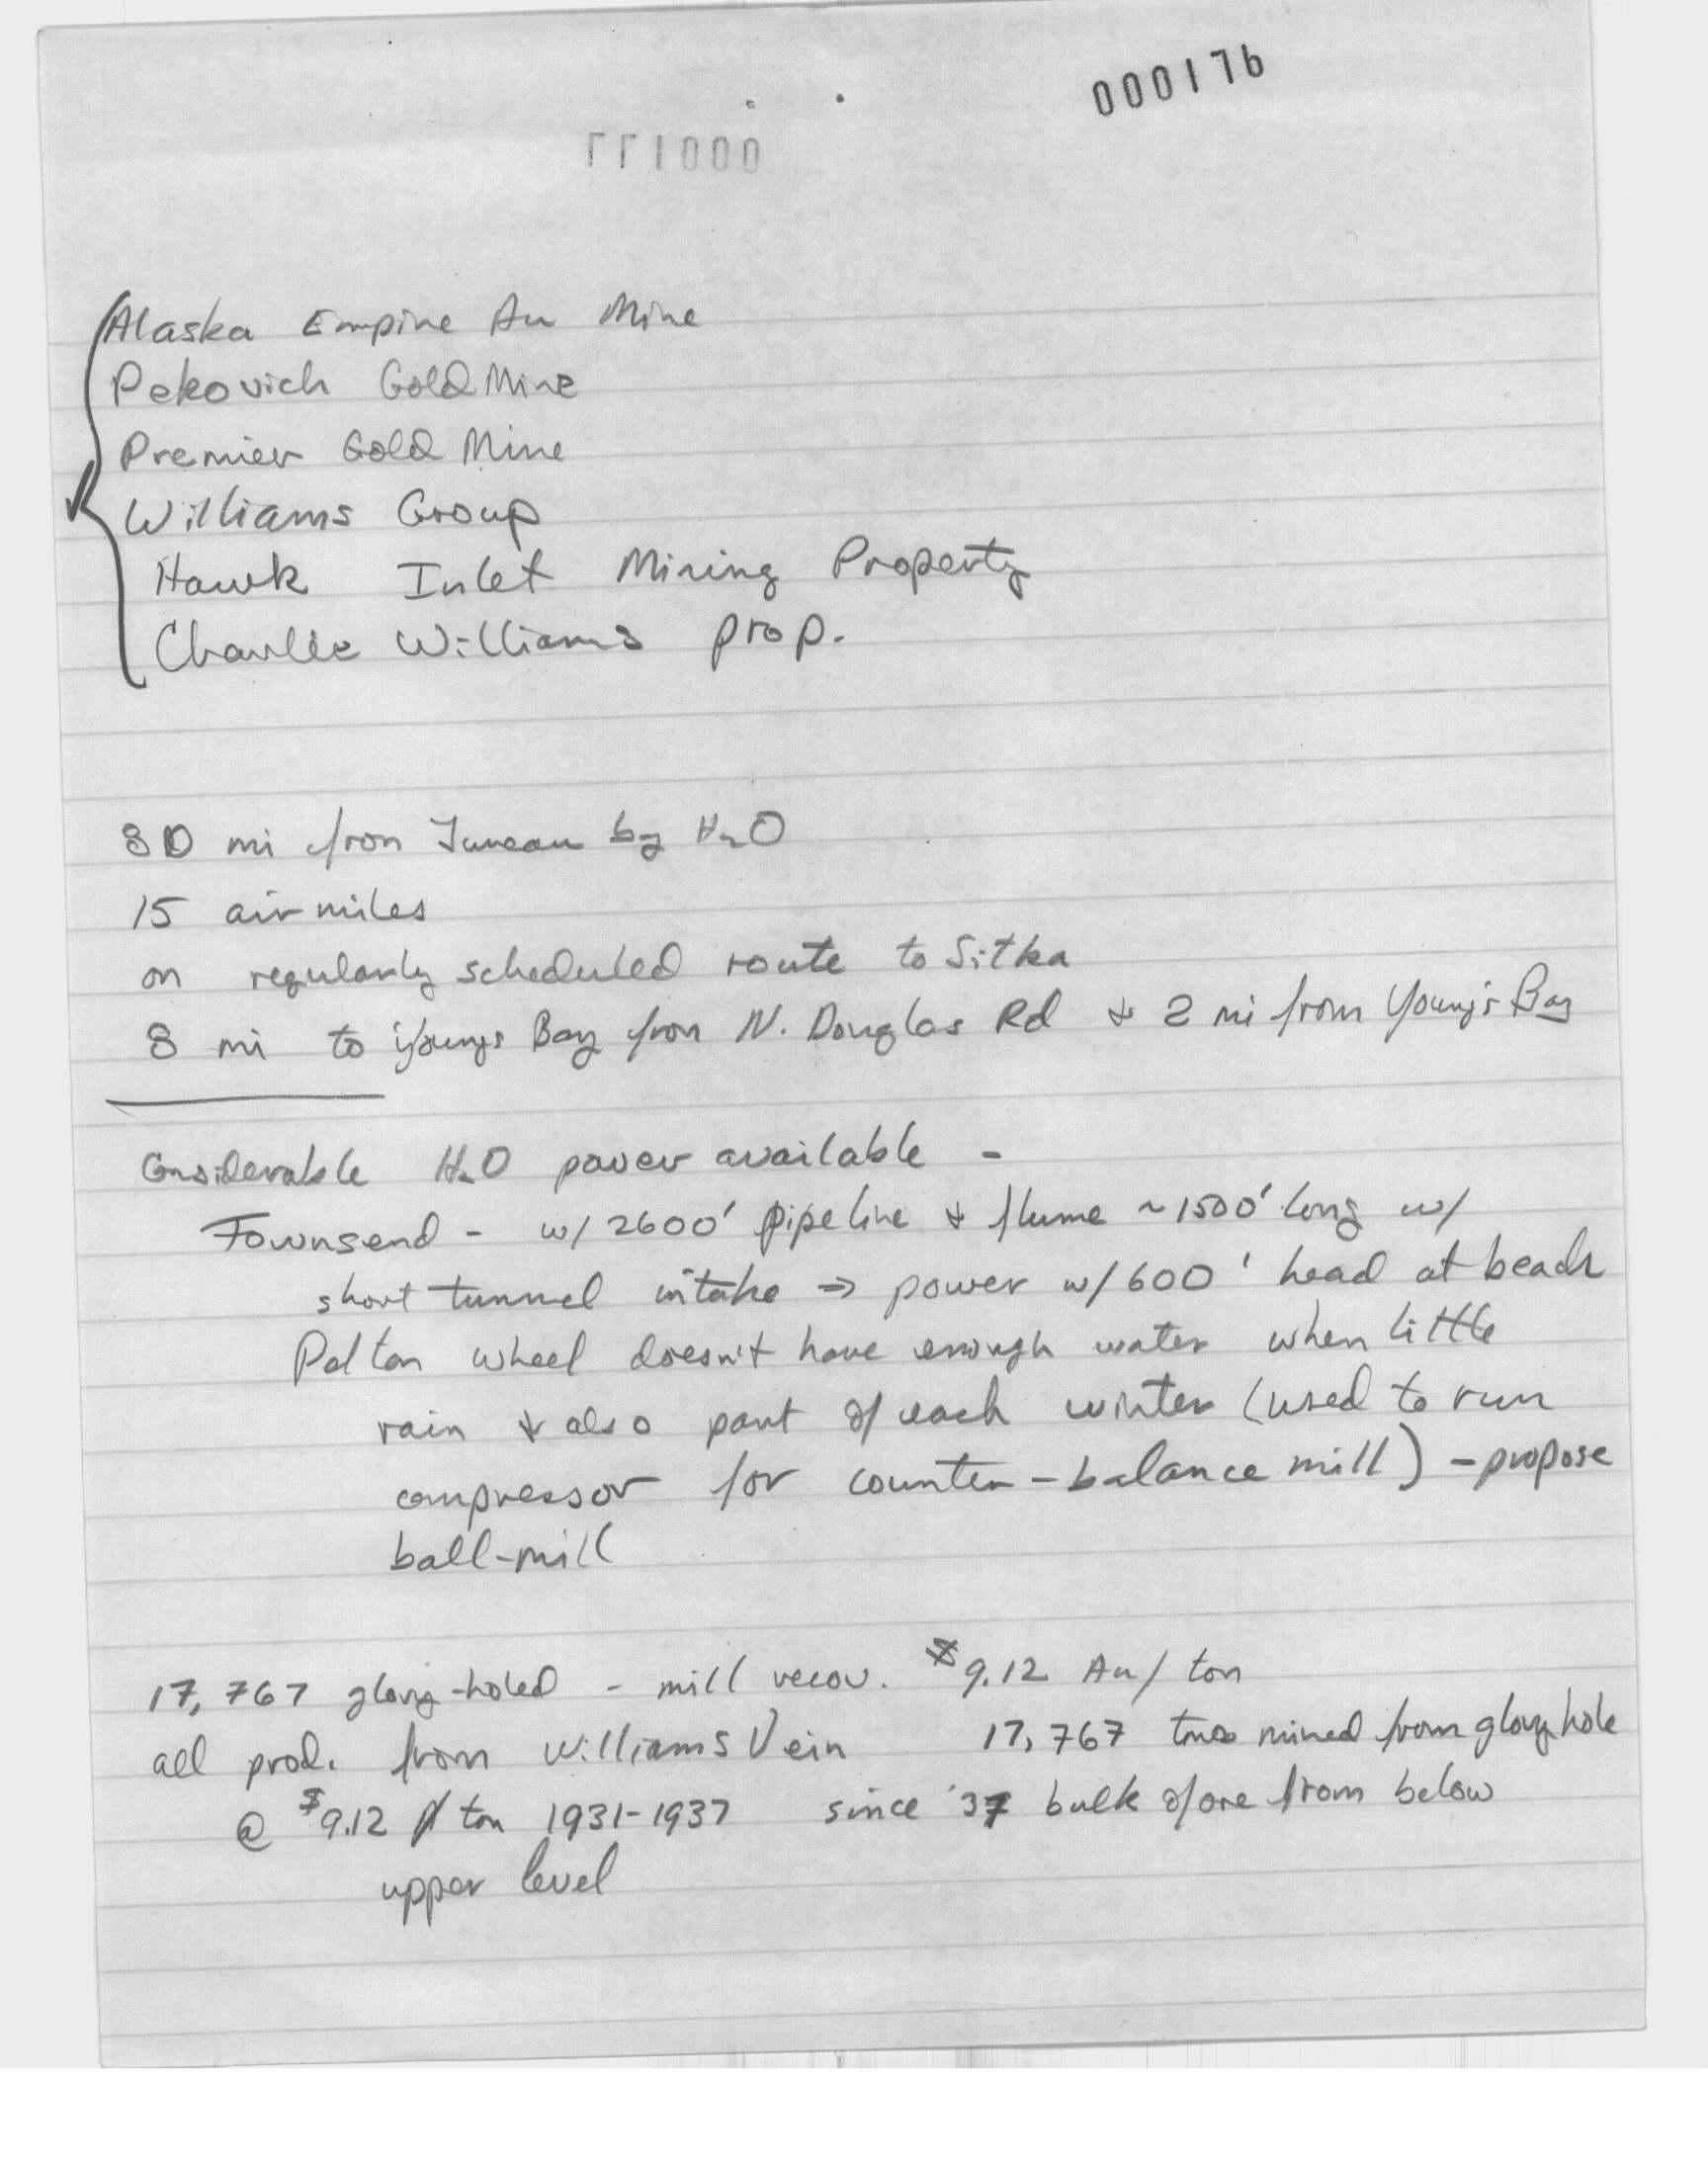 000176
000177
Alaska Empire Au Mine
Pekovich Gold Mine
Premier Gold Mine
Williams Group
Hawk Inlet Mining Property
Charlie Williams prop.
80 mi from Juneau by H2O
15 air miles
on regularly scheduled route to Sitka
8 mi to Youngs Bay from N. Douglas Rd & 2 mi from Young's Bay
Considerable H2O power available -
Townsend - w/ 2600' pipeline & flume ~1500' long w/
short tunnel intake ⇒ power w/ 600' head at beach
Pelton wheel doesn't have enough water when little
rain & also part of each winter (used to run
compressor for counter-balance mill) - propose
ball-mill
17,767 glory-holed - mill recov. $9.12 Au/ton
all prod. from Williams Vein 17,767 tons mined from glory hole
@ $9.12 p/ ton 1931-1937 since '37 bulk of ore from below
upper level